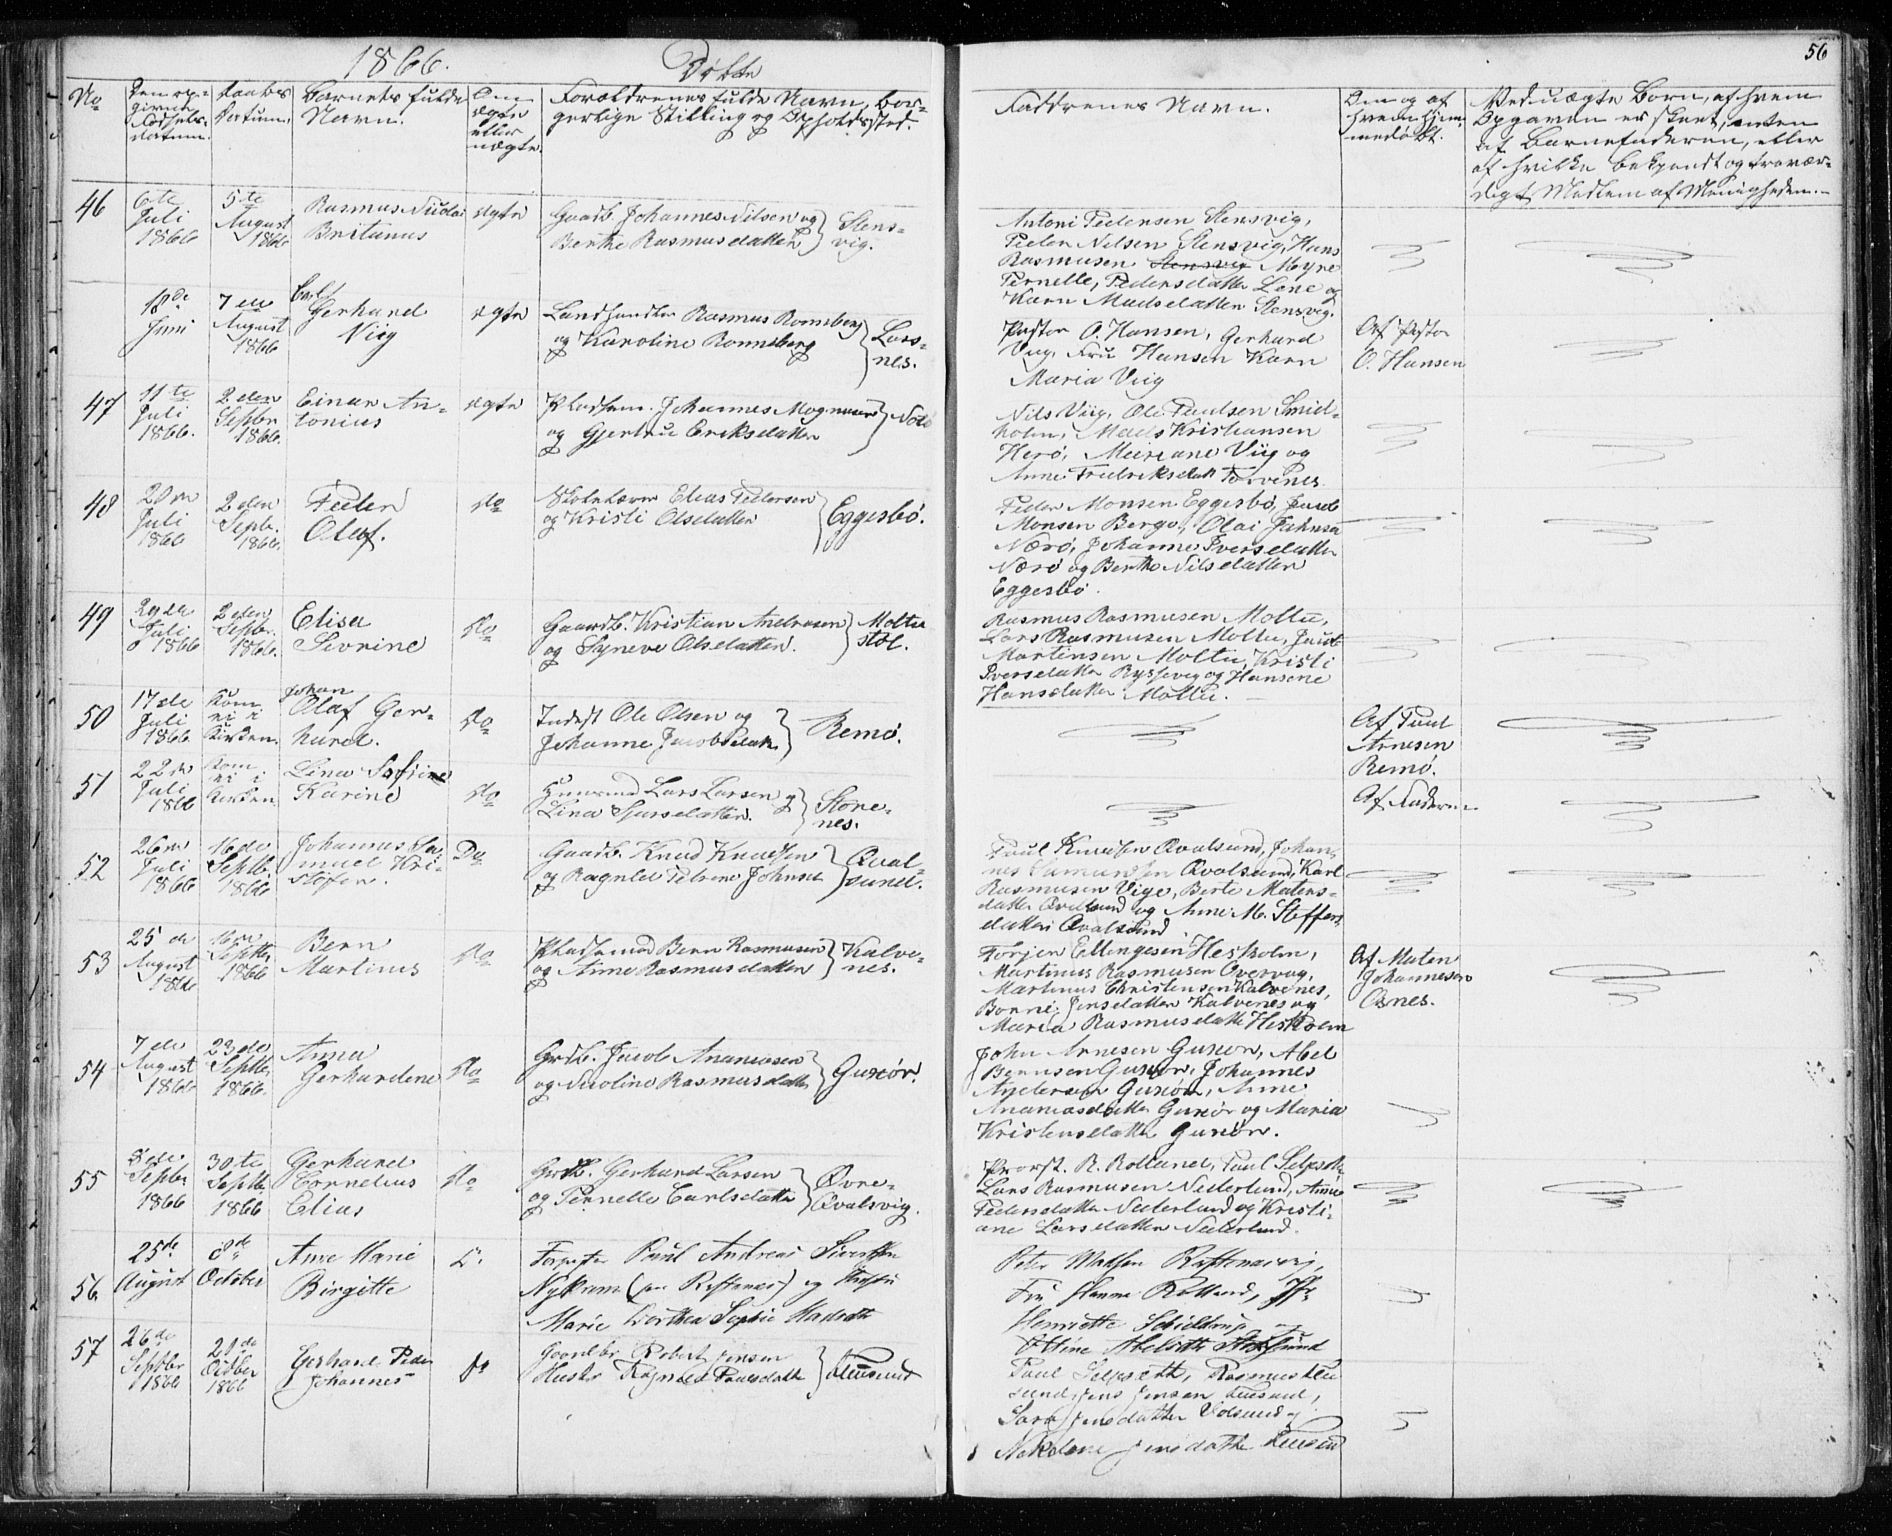 1866.
Døbte
56
No
Den op-
givne
Fødsels-
datum.
Daabs
Datum.
Barnets fulde
Navn.
Om
ægte
eller
uægte.
Forældrenes fulde Navn, bor-
gerlige Stilling og Opholdssted.
Faddrenes Navn.
Om og af
hvem hjem-
medøbt.
Ved uægte Børn, af hvem
Opgaven er skeet, enten
af Barnefaderen, eller
af hvilke bekjendt og trovær-
digt Medlem af Menigheden.-
46
6te
Juli
1866
5te
August
1866
Rasmus Nicolai
Britanus
ægte
Gaardb. Johannes Nilsen og
Berthe Rasmusdatter
Stens-
vig.
Antoni Pedersen Stensvig,
Peder Nilsen Stensvig, Hans
Rasmusen Stensvig Moyne
Pernelle, Pedersdatter Lene og
Karn Madsdatter Stensvig.
18de
Juni
7de
August
1866
Carl
Gerhard
Viig
ægte
Landhandler Rasmus Rønneberg
og Karoline Rønneberg
Lars-
nes.
Pastor O. Hansen, Gerhard
Viig, Fru Hansen Karn
Maria Viig
Af Pastor
O. Hansen
47
11te
Juli
1866.
2den
Septbr
1866.
Einar An-
tonius
ægte
Pladsm. Johannes Mogensen
og Gjertru Eriksdatter
Nils Viig, Ole Paulsen Smid-
holm, Mads Kristiansen
Herø, Mariane Viig og
Anne Fredriksdatt Torvenes
48
20de
Juli
1866
2den
Septb.
1866.
Peder
Olaf.
do
Skolelærer Elias Pedersen
og Kristi Olsdatter
Eggesbø.
Peder Monsen Eggesbø, Jacob
Monsen Berge, Olai Johnsen
Nærø, Johanne Iversdatter
Nærø og Berthe Nilsdatter
Eggesbø.
49
20de
Juli
1866
2den
Septbr.
1866.
Elisa
Sivrine
do
Gaardb. Kristian Andreasen
og Syneve Olsdatter.
Moltu
støl.
Rasmus Rasmusen Moltu,
Lars Rasmusen Moltu, Jacob
Martinsen Moltu, Kristi
Iversdatter Ryssevig og Hansine
Hansdatter Moltu.
50
17de
Juli
1866
Kom
ei i
Kirken.
Johan
Olaf Ger-
hard.
do
Inderst Ole Olsen og
Johanne Jacobsdatt
Remø.
Af Paul
Arnesen
Remø.
51
22de
Juli
1866
Kom
ei i
Kirken
Lina Sofine
Karine
do
Huusmand Lars Larsen og
Lina Sjursdatter.
Store-
nes.
Af Faderen
52
26de
Juli
1866
16de
Septb.
1866
Johannes Sa-
muel Kri-
stofer.
Do
Gaardb. Knud Knudsen
og Ragnild Petrine Johnsd
Qval-
sund.
Paul Knudsen Qvalsund, Johan-
nes Samundsen Qvalsund, Karl
Rasmusen Vige, Berte Matens-
datter Qvalsund og Anne M. Steffens
datter Qvalsund
53
25de
August
1866
16de
Septbr
1866
Bern
Martinus
do
Pladsmand Bern Rasmusen
og Anne Rasmusdatter
Kalve-
nes.
Torjer Ellingesen Hesholm,
Martinus Rasmusen Overvaag,
Martinus Christensen Kalvenes,
Bonni Jensdatter Kalvenes og
Maria Rasmusdatter Hesholm
Af Maten
Johannesen
Osnes.
54
7de
August
1866
23de
Septbr
1866.
Anna
Gerhardene
do
Grdb. Jacob Ananiasen
og Nicoline Rasmusdatter
Gurskør.
John Arnesen Gurskør, Abel
Berntsen Gurskør, Johannes
Andersen Gurskør, Anne
Ananiasdatter Gurskør og Maria
Kristensdatter Gurskør.
55
8de
Septbr
1866
30te
Septbr
1866
Gerhard
Cornelius
Elias
do
Grdb. Gerhard Larsen
og Pernelle Carlsdatter
Øvre-
Qvalsvig.
Provst. R. Rolland, Paul Selpseth
Lars Rasmusen Nederlund, Anne
Pedersdatter Nederlund og Kristi-
ane Larsdatter Nederlund.
56
25de
August
8de
October
Anne Marie
Birgitte
Paul Andreas Sivertsen
og Hustru
Marie Dorthea Sophie Madsdtr
Peter Madsen
Fru Hanna Rolland, Jfr.
Henriette Schieldrup og
57
26de
Septbr
1866
21de
October
1866
Gerhard Peder
Johannes
do
Gaardbr Robert Jensen
Hustr Ragnild Paulsdatter
Paul Selpseth, Rasmus
sund, Jens Jensen
Sara Jensdatter
Jensdatter